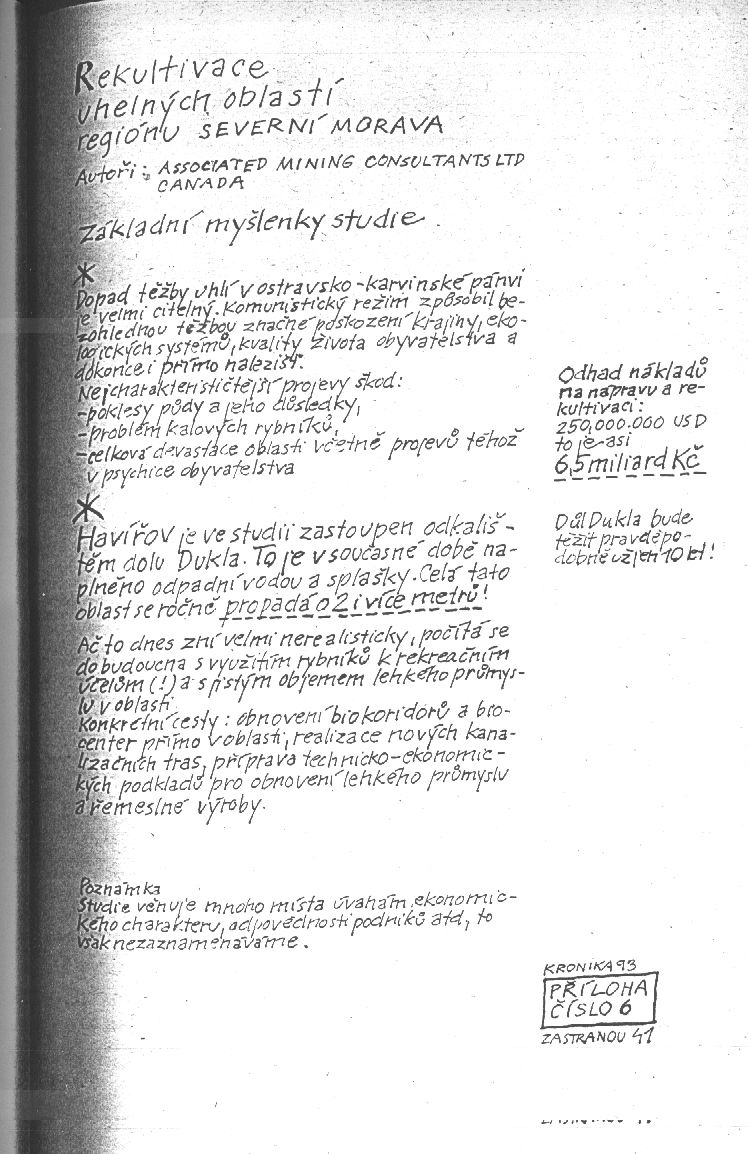 Rekultivace
uhelných oblastí
regionu SEVERNÍ MORAVA
Autoři: ASSOCIATED MINING CONSULTANTS LTD
CANADA
základní myšlenky studie
*
Dopad těžby uhlí v ostravsko-karvinské pánvi
je velmi citelný. Komunistický režim způsobil be-
zohlednou těžbou značné poškození krajiny, eko-
logických systémů, kvality života obyvatelstva a
dokonce i přímo nalezišť.
Nejcharakterističtější projevy škod:
-poklesy půdy a jeho důsledky,
-problém kalových rybníků,
-celková devastace oblasti včetně projevů téhož
v psychice obyvatelstva
*
Havířov je ve studii zastoupen odkališ-
těm dolu Dukla. To je v současné době na-
plněno odpadní vodou a splašky. Celá tato
oblast se ročně propadá o 2 i více metrů!
Ač to dnes zní velmi nerealisticky, počítá se
do budoucna s využitím rybníků k rekreačním
účelům (!) a s jistým objemem lehkého průmys-
lu v oblasti.
Konkrétní cesty: obnovení biokoridorů a bio-
center přímo v oblasti, realizace nových kana-
lizačních tras, příprava technicko-ekonomic-
kých podkladů pro obnovení lehkého průmyslu
a řemeslné výroby.
Odhad nákladů
na nápravu a re-
kultivaci:
250,000.000 USD
to je asi
6,5 miliard Kč
Důl Dukla bude
těžit pravděpo-
dobně už jen 10 let!
Poznámka
Studie věnuje mnoho místa úvahám ekonomic-
kého charakteru, odpovědnosti podniků atd, to
však nezaznamenáváme.
KRONIKA 93
PŘÍLOHA
ČÍSLO 6
ZA STRANOU 41